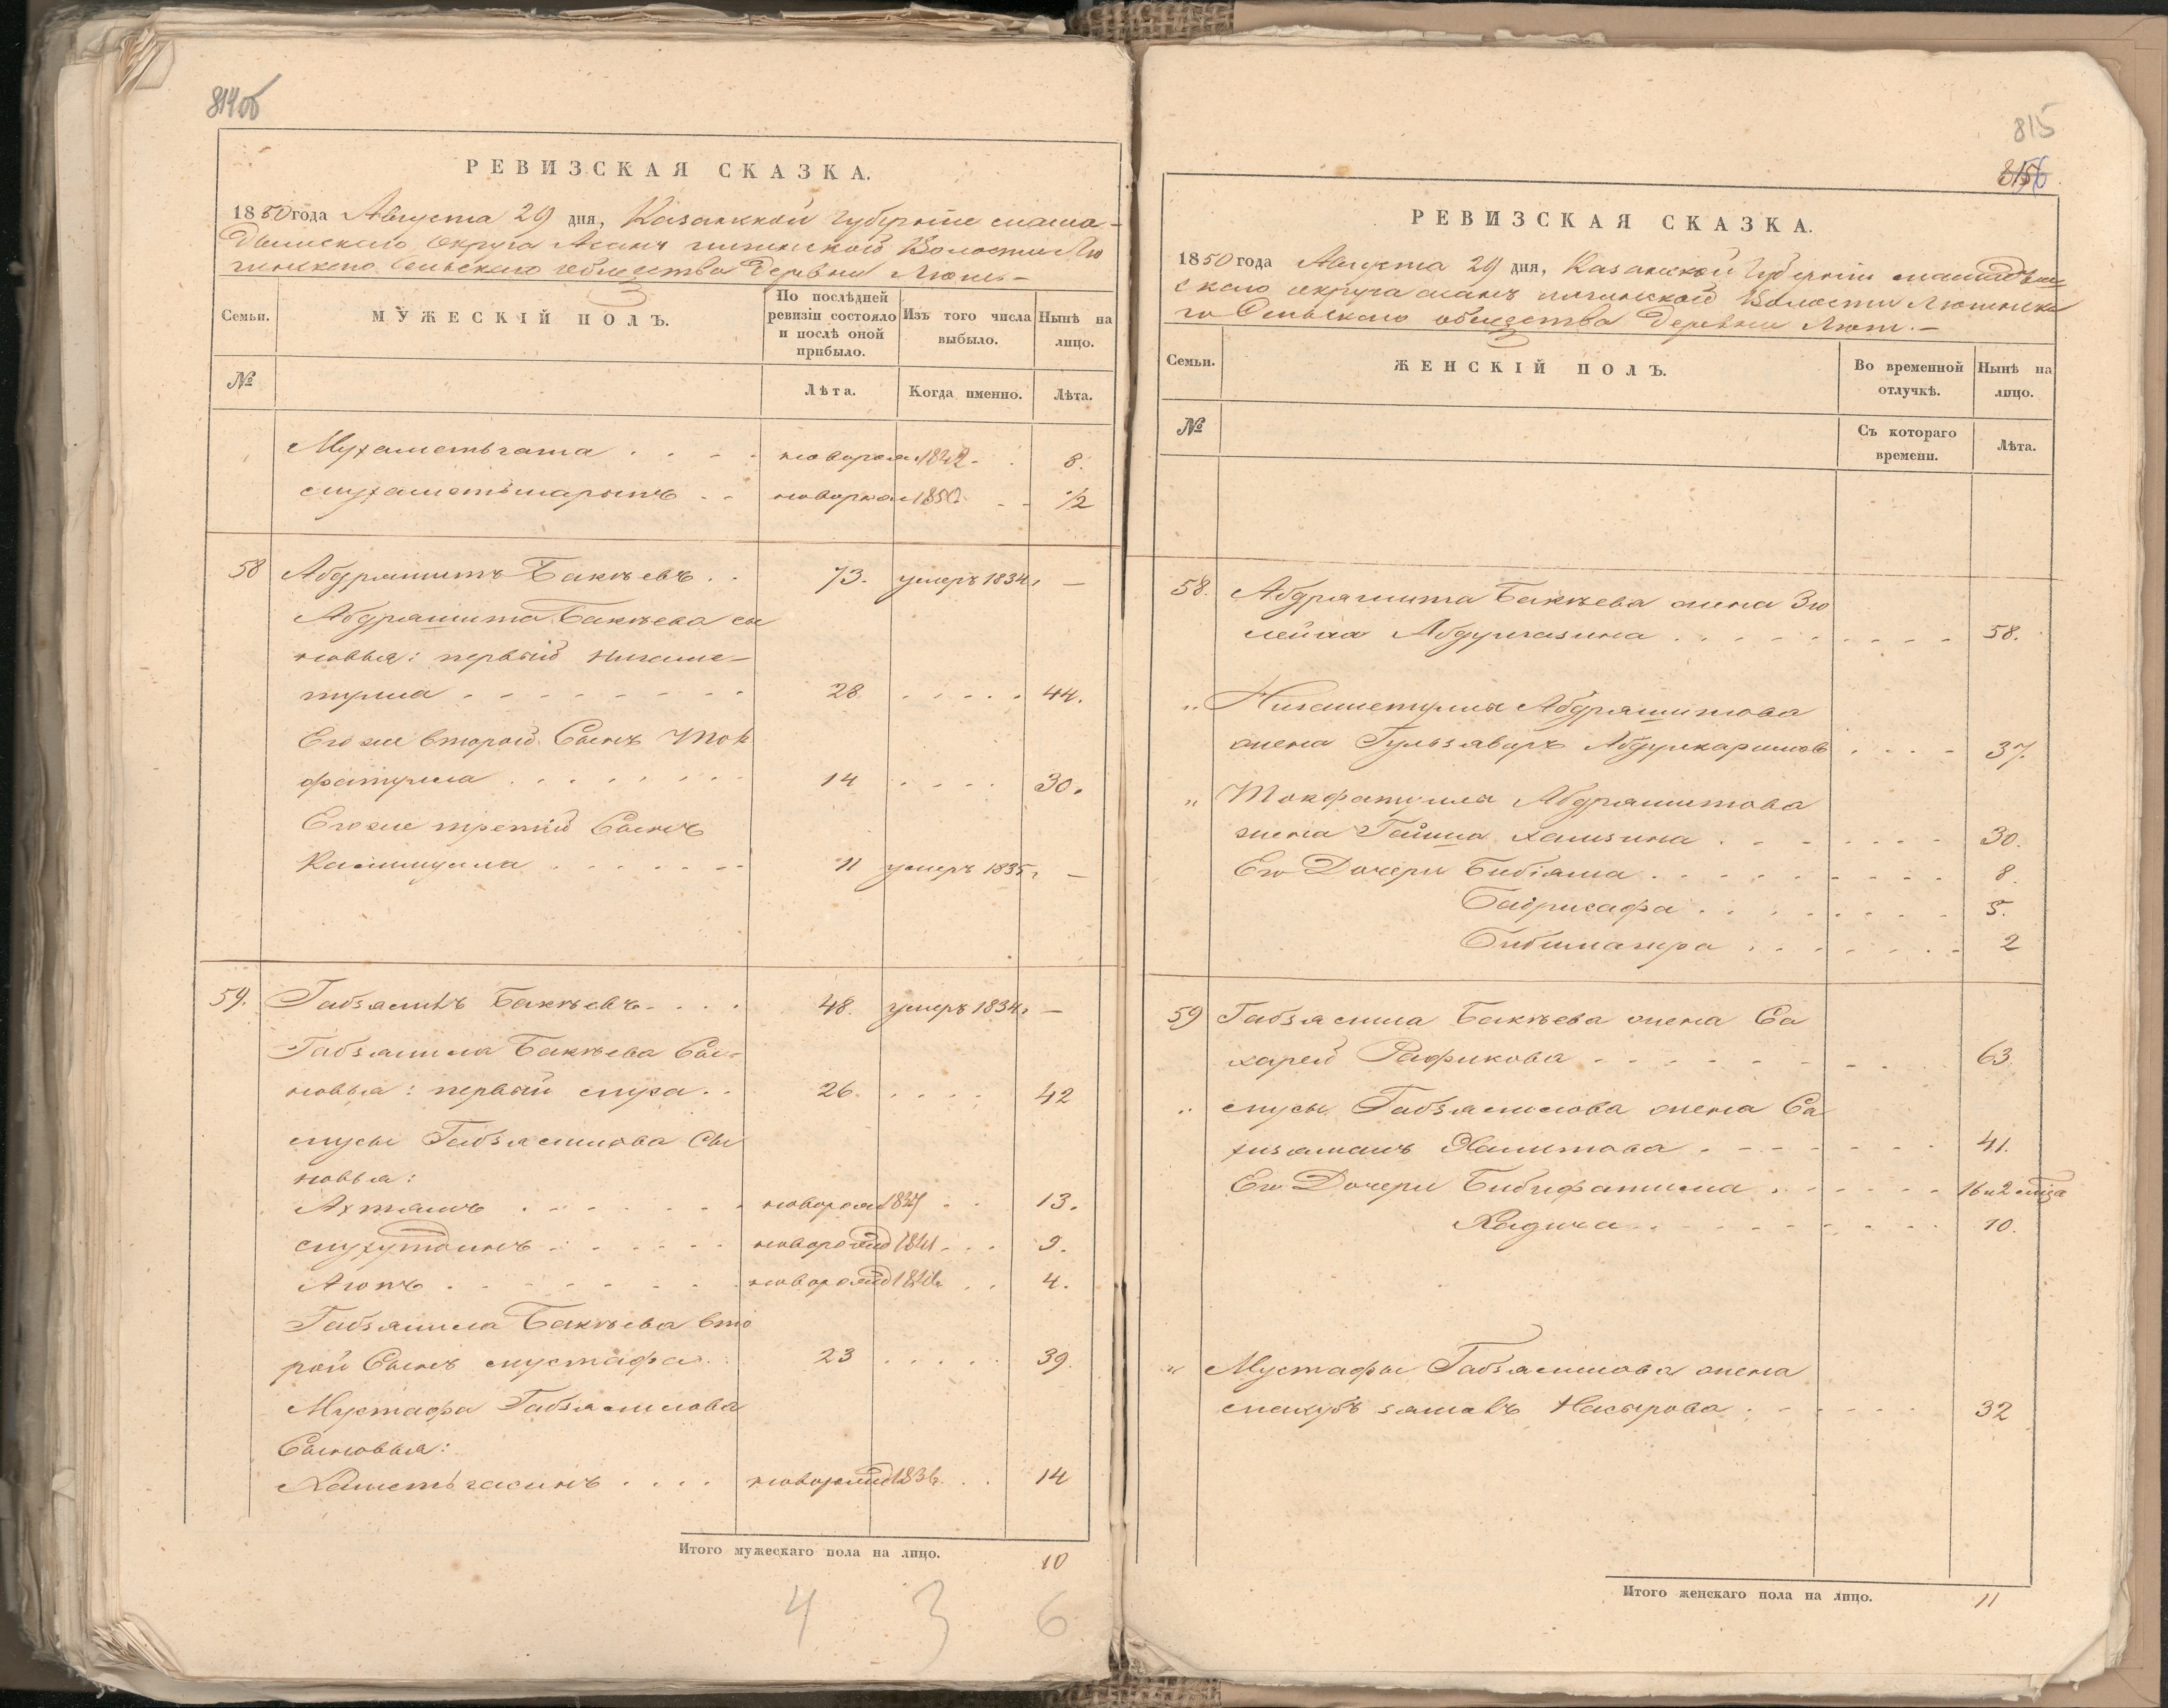 814об
РЕВИЗСКАЯ СКАЗКА.
1850 года Августа 29 дня, Казанской Губернiи мама-
дышскаго округа Асанъ Волости Лю
Сельскаго общества деревни Люги
Семьи.
МУЖЕСКІЙ ПОЛЪ.
По послѣдней ревизіи состояло и послѣ оной прибыло.
Изъ того числа выбыло.
Нынѣ на лицо.
№
Лѣта.
Когда именно.
Лѣта.
Мухаметьгата . . . . новорож 1842 - . 8.
мухаметьшарыпъ - - новорож 1850 - - 1/2
58 Абдряшитъ Бакѣевъ . . 73. умеръ 1834 г —
Абдряшита Бакѣева сы
новья: первый Нигаме-
тулла - - - - 28 . . . . . 44.
Его же второй Сынъ Ток
фатулла . . . . . 14 . . . . 30.
Его же третiй Сынъ
Калимулла . . . . 11 умеръ 1835 г —
59. Габзялилъ Бакѣевъ - . . . 48. умеръ 1834 г —
Габзялила Бакѣева Сы-
новья: первый муса . . 26. . . . . 42
мусы Габзялилова Сы
новья:
Ахтямъ . . . . новорож 1837 - - 13.
мухутдинъ . . . . новорожд 1841 . . . 9.
Аюпъ . . . . новорожд 1846 . . . 4.
Габзялила Бакѣева вто
рой Сынъ мустафа . . 23 . . . . . 39.
Мустафа Габзялилова
Сыновья:
Хаметьгасинъ . . . . новорожд 1836. . . 14
Итого мужескаго пола на лицо. 10
4 3 6
815
РЕВИЗСКАЯ СКАЗКА.
1850 года Августа 29 дня, Казанской Губернiи мамадыш
скаго округа асанъ Волости
го Сельскаго общества деревни Люги.-
Семьи.
ЖЕНСКІЙ ПОЛЪ.
Во временной отлучкѣ.
Нынѣ на лицо.
№
Съ котораго времени.
Лѣта.
58. Абдряшита Бакѣева жена Зю
лейха Абдулгазина . . . . . 58.
" Нигаметуллы Абдряшитова
жена Гульзявяръ Абдулкаримов . . . - 37.
" Токфатулла Абдряшитова
жена Гайша Хамзина . . . . 30.
Его Дочери Бибiяша . . . . . 8.
Бадрисафа . . . . . 5.
Бибимагира . . . . . 2
59 Габзялила Бакѣева жена Са
харей Рафикова - - - - 63.
" мусы Габзялилова жена Са
хизяманъ Хамитова . - - - 41.
Его Дочери Бибифатима . . . . 16 и 2 мѣца
Хадича . . . . . 10.
" Мустафы Габзялилова жена
махубъ замалъ Насырова . . . . 32
Итого женскаго пола на лицо. 11